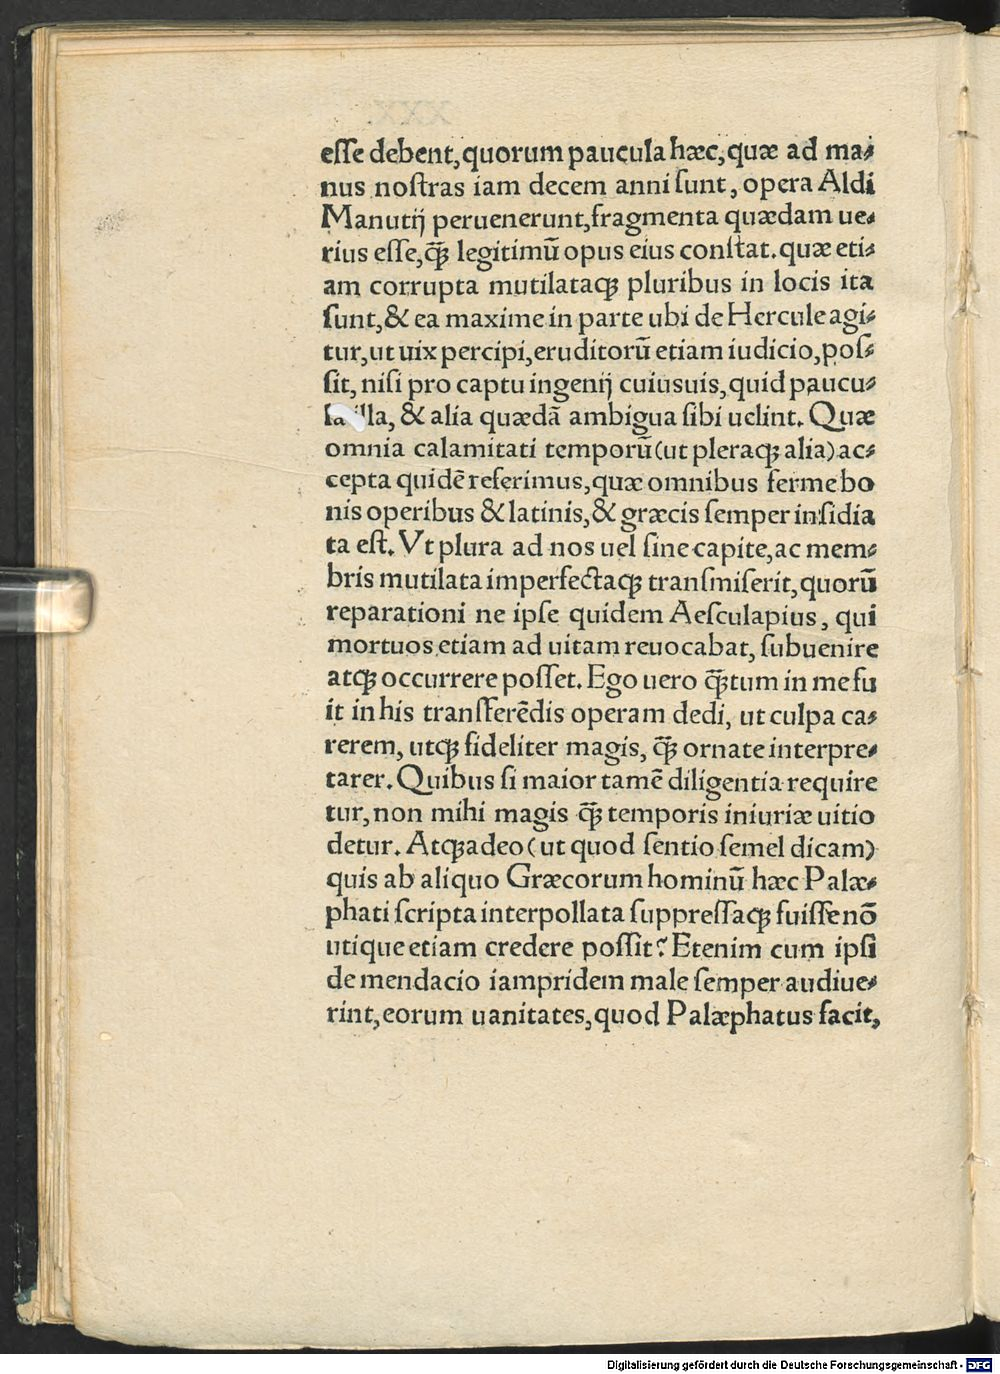 eſſe debent, quorum paucula hæc, quæ ad ma⸗
nus noſtras iam decem anni ſunt, opera Aldi
Manutij peruenerunt, fragmenta quædam ue⸗
rius eſſe, ꝙ̃ legitimũ opus eius conſtat. quæ eti⸗
am corrupta mutilataꝗ pluribus in locis ita
ſunt, & ea maxime in parte ubi de Hercule agi⸗
tur, ut uix percipi, eruditorũ etiam iudicio, poſ⸗
ſit, niſi pro captu ingenij cuiusuis, quid paucu⸗
la illa, & alia quædã ambigua ſibi uelint. Quæ
omnia calamitati temporũ (ut pleraꝗ alia) ac⸗
cepta quidẽ referimus, quæ omnibus ferme bo
nis operibus & latinis, & græcis ſemper inſidia
ta eſt. Vt plura ad nos uel ſine capite, ac mem⸗
bris mutilata imperfectaꝗ tranſmiſerit, quorũ
reparationi ne ipſe quidem Aeſculapius, qui
mortuos etiam ad uitam reuocabat, ſubuenire
atꝗ occurrere poſſet. Ego uero ꝙ̃tum in me fu
it in his tranſferẽdis operam dedi, ut culpa ca⸗
rerem, utꝗ fideliter magis, ꝙ̃ ornate interpre⸗
tarer. Quibus ſi maior tamẽ diligentia require
tur, non mihi magis ꝙ̃ temporis iniuriæ uitio
detur. Atꝗ adeo (ut quod ſentio ſemel dicam)
quis ab aliquo Græcorum hominũ hæc Palæ⸗
phati ſcripta interpollata ſuppreſſaꝗ fuiſſe nõ
utique etiam credere poſſit? Etenim cum ipſi
de mendacio iampridem male ſemper audiue⸗
rint, eorum uanitates, quod Palæphatus facit,
Digitalisierung gefördert durch die Deutsche Forschungsgemeinschaft - DFG